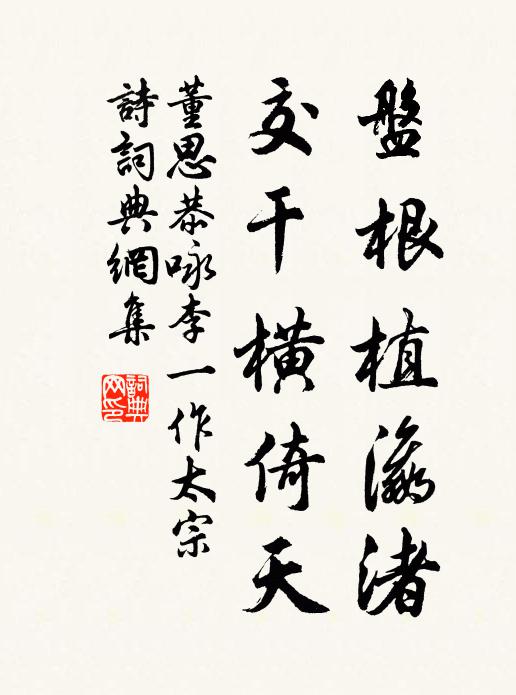 盤根植瀛渚
交干橫倚天
董思恭咏李一作太宗
詩詞典網集
詞典網印